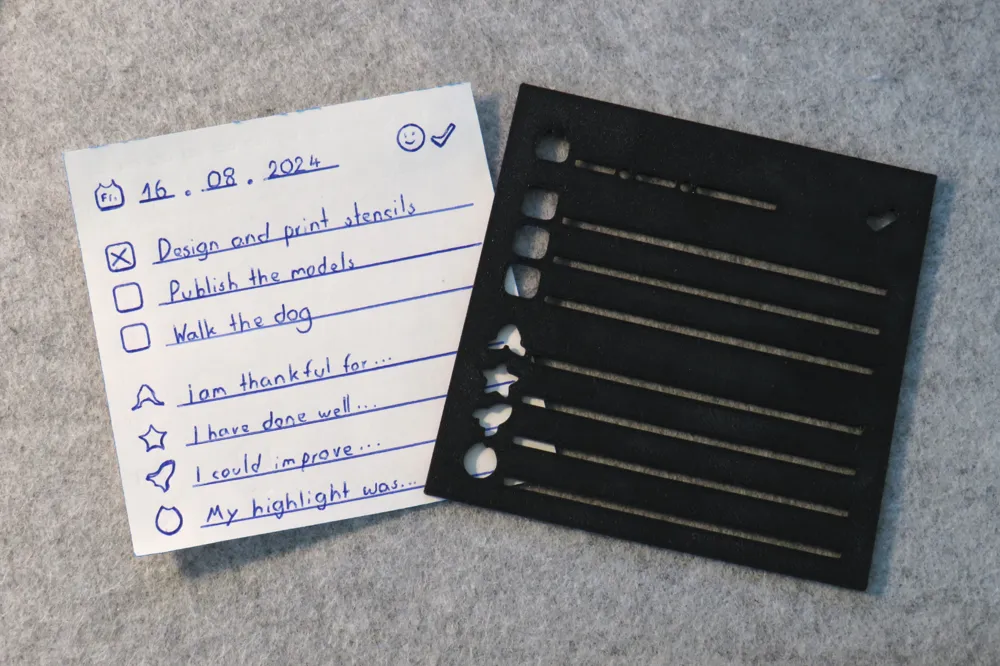 Fr. 16 . 08 . 2024
Design and print stencils
Publish the models
Walk the dog
i am thankful for...
I have done well...
I could improve...
My highlight was...